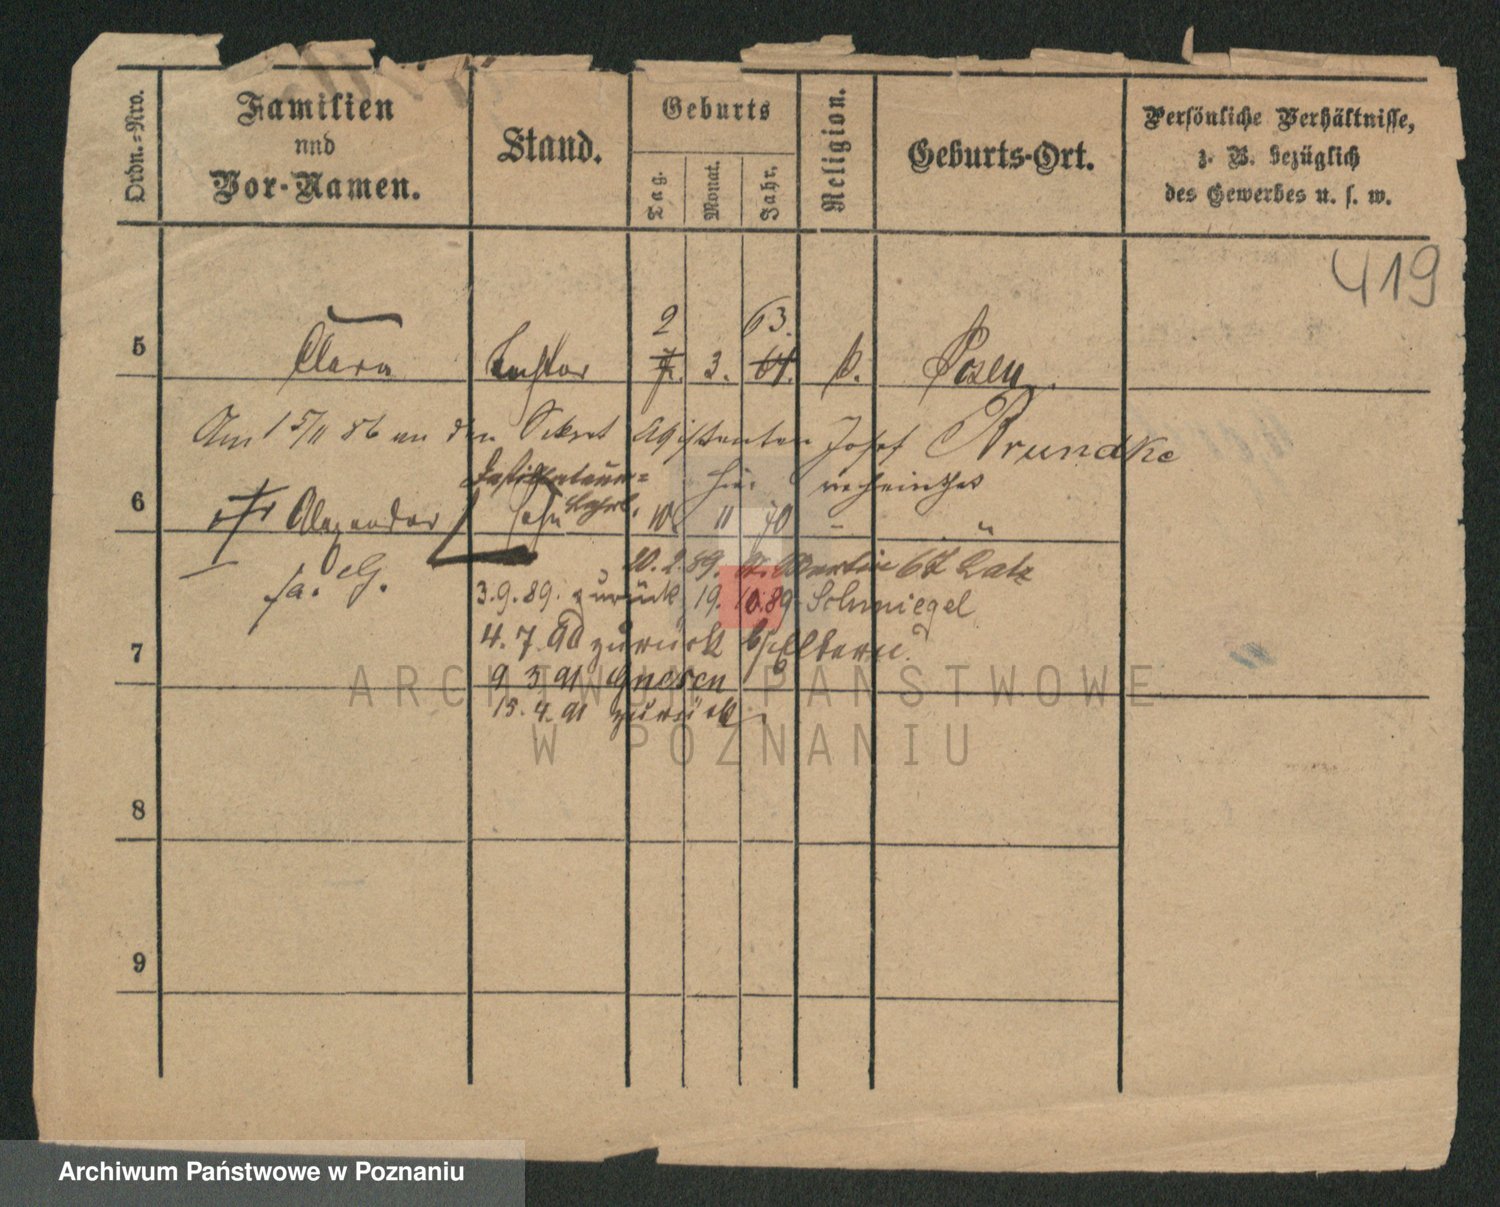 Ordn.-Nro.
Familien
und
Vor-Namen.
Stand.
Geburts
Tag.
Monat.
Jahr.
Religion.
Geburts-Ort.
Persönliche Verhältnisse,
z. B. bezüglich
des Gewerbes u. s. w.
419
2 63.
5 Clara Tochter 7. 3. 64. k. Posen
Am 15/11 86 an den Sekret Assistenten Josef Brundke
hier verheirathet
6 Alexander Sohn 10. 11 70 - "
fa. G.
20. 2. 89. St. Martin 67
3.9.89. zurück 19. 10.89 Schmiegel
4. 7. 90 zurück Eltern
7
9 3 91 Gnesen
15. 4. 91 zurück
8
9
ARCHIWUM PAŃSTWOWE
W POZNANIU
Archiwum Państwowe w Poznaniu